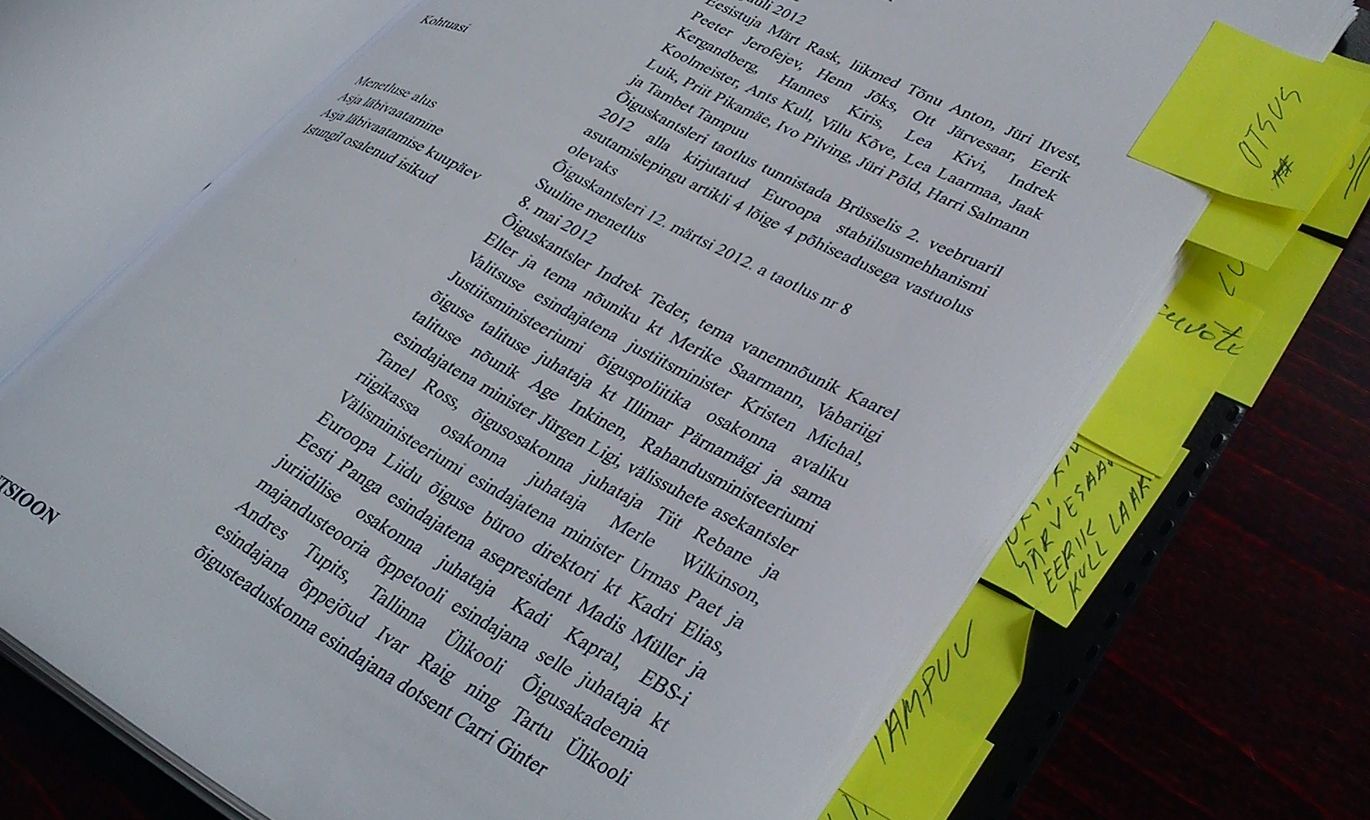 juuli 2012
Eesistuja Märt Rask, liikmed Tõnu Anton, Jüri Ilvest,
Peeter Jerofejev, Henn Jõks, Ott Järvesaar, Eerik
Kergandberg, Hannes Kiris, Lea Kivi, Indrek
Koolmeister, Ants Kull, Villu Kõve, Lea Laarmaa, Jaak
Luik, Priit Pikamäe, Ivo Pilving, Jüri Põld, Harri Salmann
ja Tambet Tampuu
Kohtuasi
Õiguskantsleri taotlus tunnistada Brüsselis 2. veebruaril
2012 alla kirjutatud Euroopa stabiilsusmehhanismi
asutamislepingu artikli 4 lõige 4 põhiseadusega vastuolus
olevaks
Menetluse alus
Õiguskantsleri 12. märtsi 2012. a taotlus nr 8
Asja läbivaatamine
Suuline menetlus
Asja läbivaatamise kuupäev
8. mai 2012
Istungil osalenud isikud
Õiguskantsler Indrek Teder, tema vanemnõunik Kaarel
Eller ja tema nõuniku kt Merike Saarmann, Vabariigi
Valitsuse esindajatena justiitsminister Kristen Michal,
Justiitsministeeriumi õiguspoliitika osakonna avaliku
õiguse talituse juhataja kt Illimar Pärnamägi ja sama
talituse nõunik Age Inkinen, Rahandusministeeriumi
esindajatena minister Jürgen Ligi, välissuhete asekantsler
Tanel Ross, õigusosakonna juhataja Tiit Rebane ja
riigikassa osakonna juhataja Merle Wilkinson,
Välisministeeriumi esindajatena minister Urmas Paet ja
Euroopa Liidu õiguse büroo direktori kt Kadri Elias,
Eesti Panga esindajatena asepresident Madis Müller ja
juriidilise osakonna juhataja Kadi Kapral, EBS-i
majandusteooria õppetooli esindajana selle juhataja kt
Andres Tupits, Tallinna Ülikooli Õigusakadeemia
esindajana õppejõud Ivar Raig ning Tartu Ülikooli
õigusteaduskonna esindajana dotsent Carri Ginter
TSIOON
OTSUS
JÄRVESAA
EERIK
KULL LAAR
TAMPUU